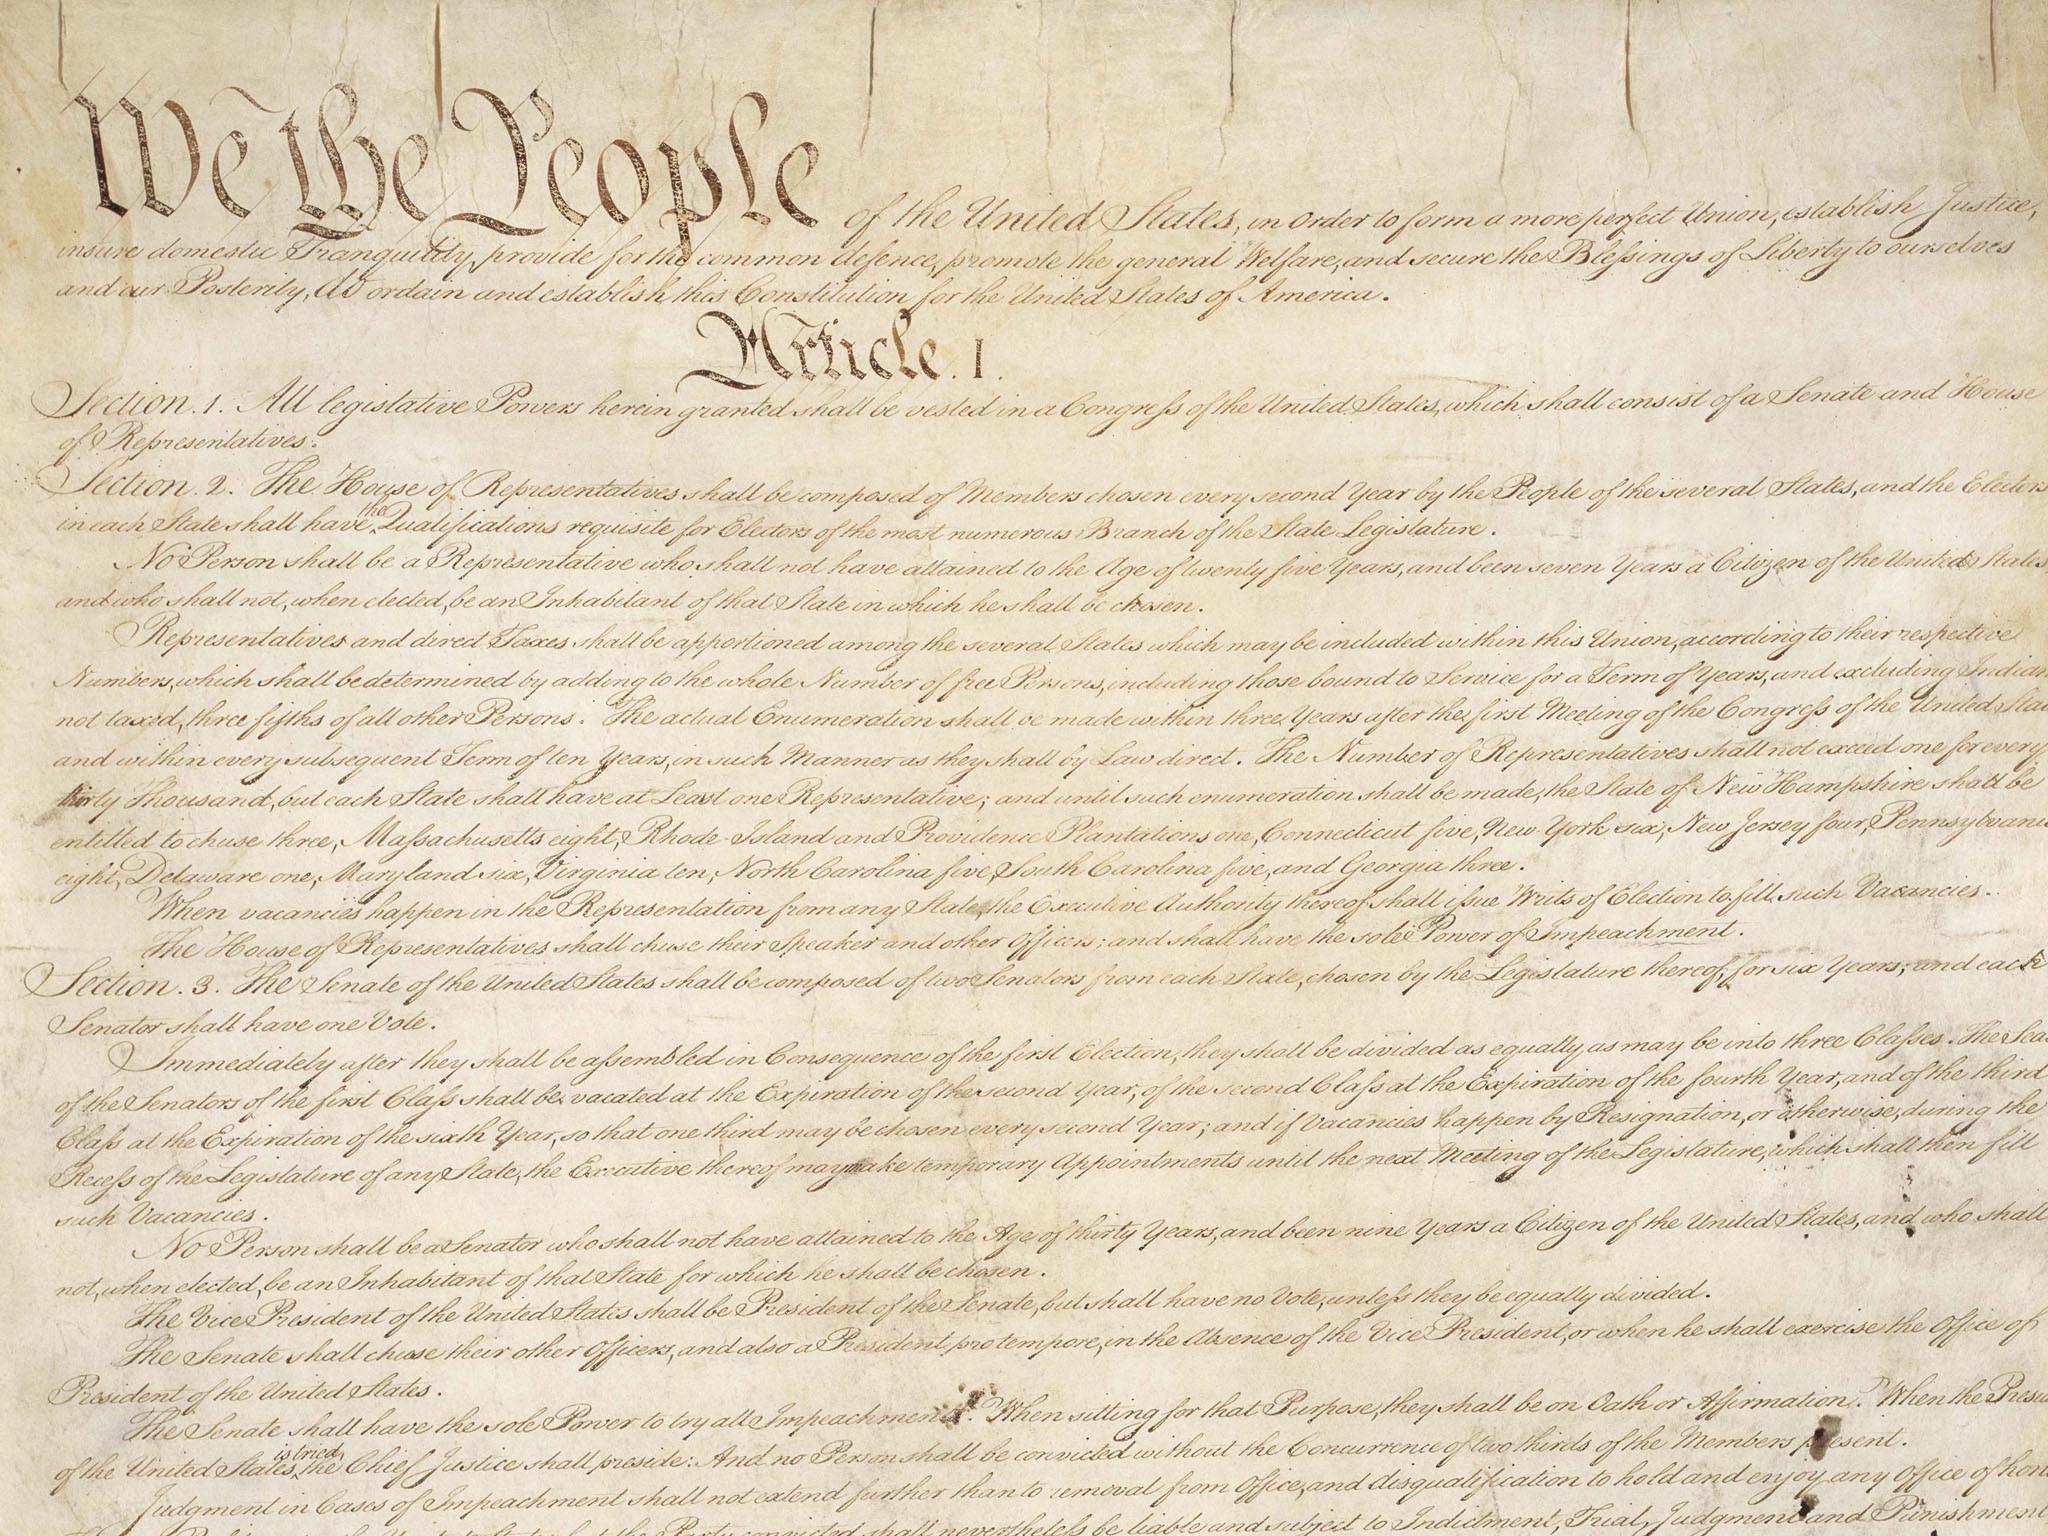 We the People of the United States, in Order to form a more perfect Union, establish Justice,
insure domestic Tranquility, provide for the common defence, promote the general Welfare, and secure the Blessings of Liberty to ourselves
and our Posterity, do ordain and establish this Constitution for the United States of America.
Article. I.
Section. 1. All legislative Powers herein granted shall be vested in a Congress of the United States, which shall consist of a Senate and House
of Representatives.
Section. 2. The House of Representatives shall be composed of Members chosen every second Year by the People of the several States, and the Electors
in each State shall have the Qualifications requisite for Electors of the most numerous Branch of the State Legislature.
No Person shall be a Representative who shall not have attained to the Age of twenty five Years, and been seven Years a Citizen of the United States,
and who shall not, when elected, be an Inhabitant of that State in which he shall be chosen.
Representatives and direct Taxes shall be apportioned among the several States which may be included within this Union, according to their respective
Numbers, which shall be determined by adding to the whole Number of free Persons, including those bound to Service for a Term of Years, and excluding Indians
not taxed, three fifths of all other Persons. The actual Enumeration shall be made within three Years after the first Meeting of the Congress of the United Stat
and within every subsequent Term of ten Years, in such Manner as they shall by Law direct. The Number of Representatives shall not exceed one for every
thirty Thousand, but each State shall have at Least one Representative; and until such enumeration shall be made, the State of New Hampshire shall be
entitled to chuse three, Massachusetts eight, Rhode-Island and Providence Plantations one, Connecticut five, New-York six, New Jersey four, Pennsylvania
eight, Delaware one, Maryland six, Virginia ten, North Carolina five, South Carolina five, and Georgia three.
When vacancies happen in the Representation from any State, the Executive Authority thereof shall issue Writs of Election to fill such Vacancies.
The House of Representatives shall chuse their Speaker and other Officers; and shall have the sole Power of Impeachment.
Section. 3. The Senate of the United States shall be composed of two Senators from each State, chosen by the Legislature thereof, for six Years; and each
Senator shall have one Vote.
Immediately after they shall be assembled in Consequence of the first Election, they shall be divided as equally as may be into three Classes. The Sea
of the Senators of the first Class shall be vacated at the Expiration of the second Year, of the second Class at the Expiration of the fourth Year, and of the third
Class at the Expiration of the sixth Year, so that one third may be chosen every second Year; and if Vacancies happen by Resignation, or otherwise, during the
Recess of the Legislature of any State, the Executive thereof may make temporary Appointments until the next Meeting of the Legislature, which shall then fill
such Vacancies.
No Person shall be a Senator who shall not have attained to the Age of thirty Years, and been nine Years a Citizen of the United States, and who shall
not, when elected, be an Inhabitant of that State for which he shall be chosen.
The Vice President of the United States shall be President of the Senate, but shall have no Vote, unless they be equally divided.
The Senate shall chuse their other Officers, and also a President pro tempore, in the Absence of the Vice President, or when he shall exercise the Office of
President of the United States.
The Senate shall have the sole Power to try all Impeachments. When sitting for that Purpose, they shall be on Oath or Affirmation. When the Presi
of the United States is tried, the Chief Justice shall preside: And no Person shall be convicted without the Concurrence of two thirds of the Members present.
Judgment in Cases of Impeachment shall not extend further than to removal from Office, and disqualification to hold and enjoy any Office of hon
the Party convicted shall nevertheless be liable and subject to Indictment, Trial, Judgment and Punishment